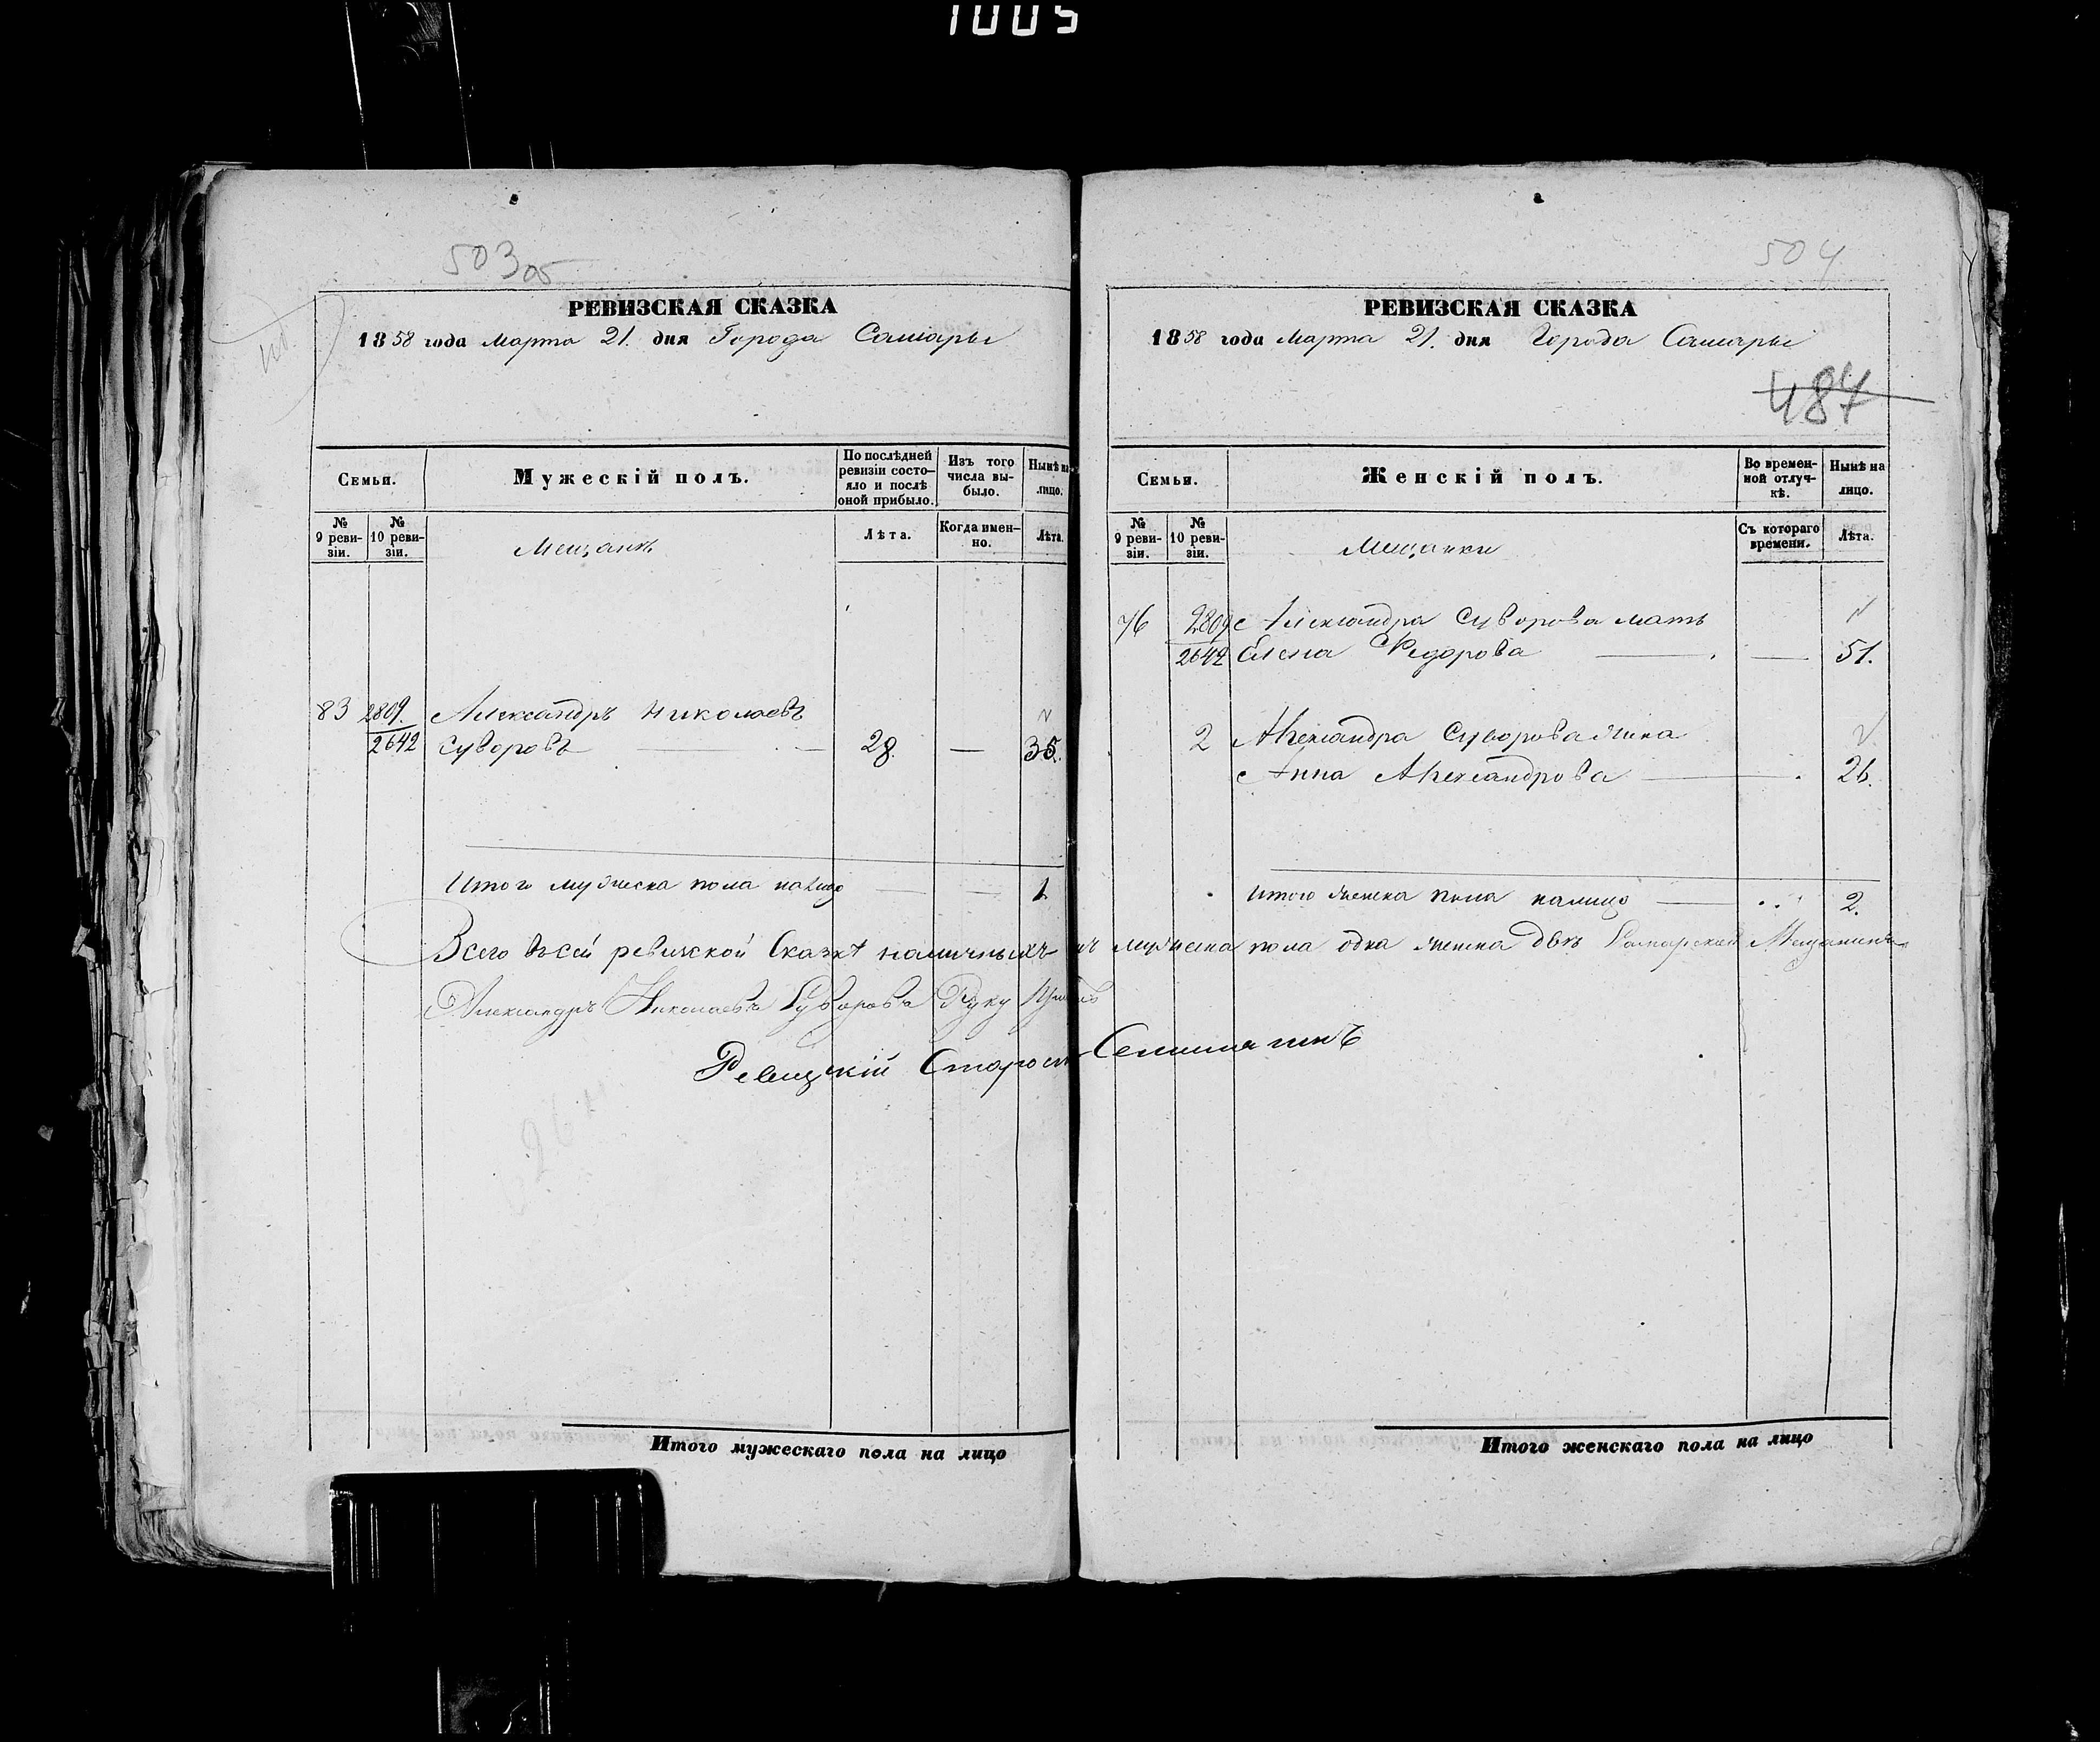 1005
503 05
РЕВИЗСКАЯ СКАЗКА
1858 года Марта 21. дня Города Самары
Семьи.
Мужескій полъ.
По послѣдней ревизіи состояло и послѣ оной прибыло.
Изъ того числа выбыло.
Нынѣ на лицо.
№ 9 ревизіи.
№ 10 ревизіи.
Мещанъ
Лѣта.
Когда именно.
Лѣта.
83 2809. Александръ Николаевъ
2642 Суворовъ 28. — 35.
Итого мужеска пола налицо — — 1.
Всего въ сей ревизской Сказкѣ наличныхъ мужеска пола одна женска двѣ Самарскай Мещанинъ
Александръ Николаевъ Суворовъ Руку
Ревизскій Старос
504
РЕВИЗСКАЯ СКАЗКА
1858 года Марта 21. дня Города Самары
487
Семьи.
Женскій полъ.
Во временной отлучкѣ.
Нынѣ на лицо.
№ 9 ревизіи.
№ 10 ревизіи.
Мещанки
Съ котораго времени.
Лѣта.
76 2809 Александра Суворова мать
2642 Елена Федорова — — 51.
2 Александра Суворова жина
Анна Александрова — 26.
Итого женска пола налицо — 2.
Итого мужескаго пола на лицо
Итого женскаго пола на лицо